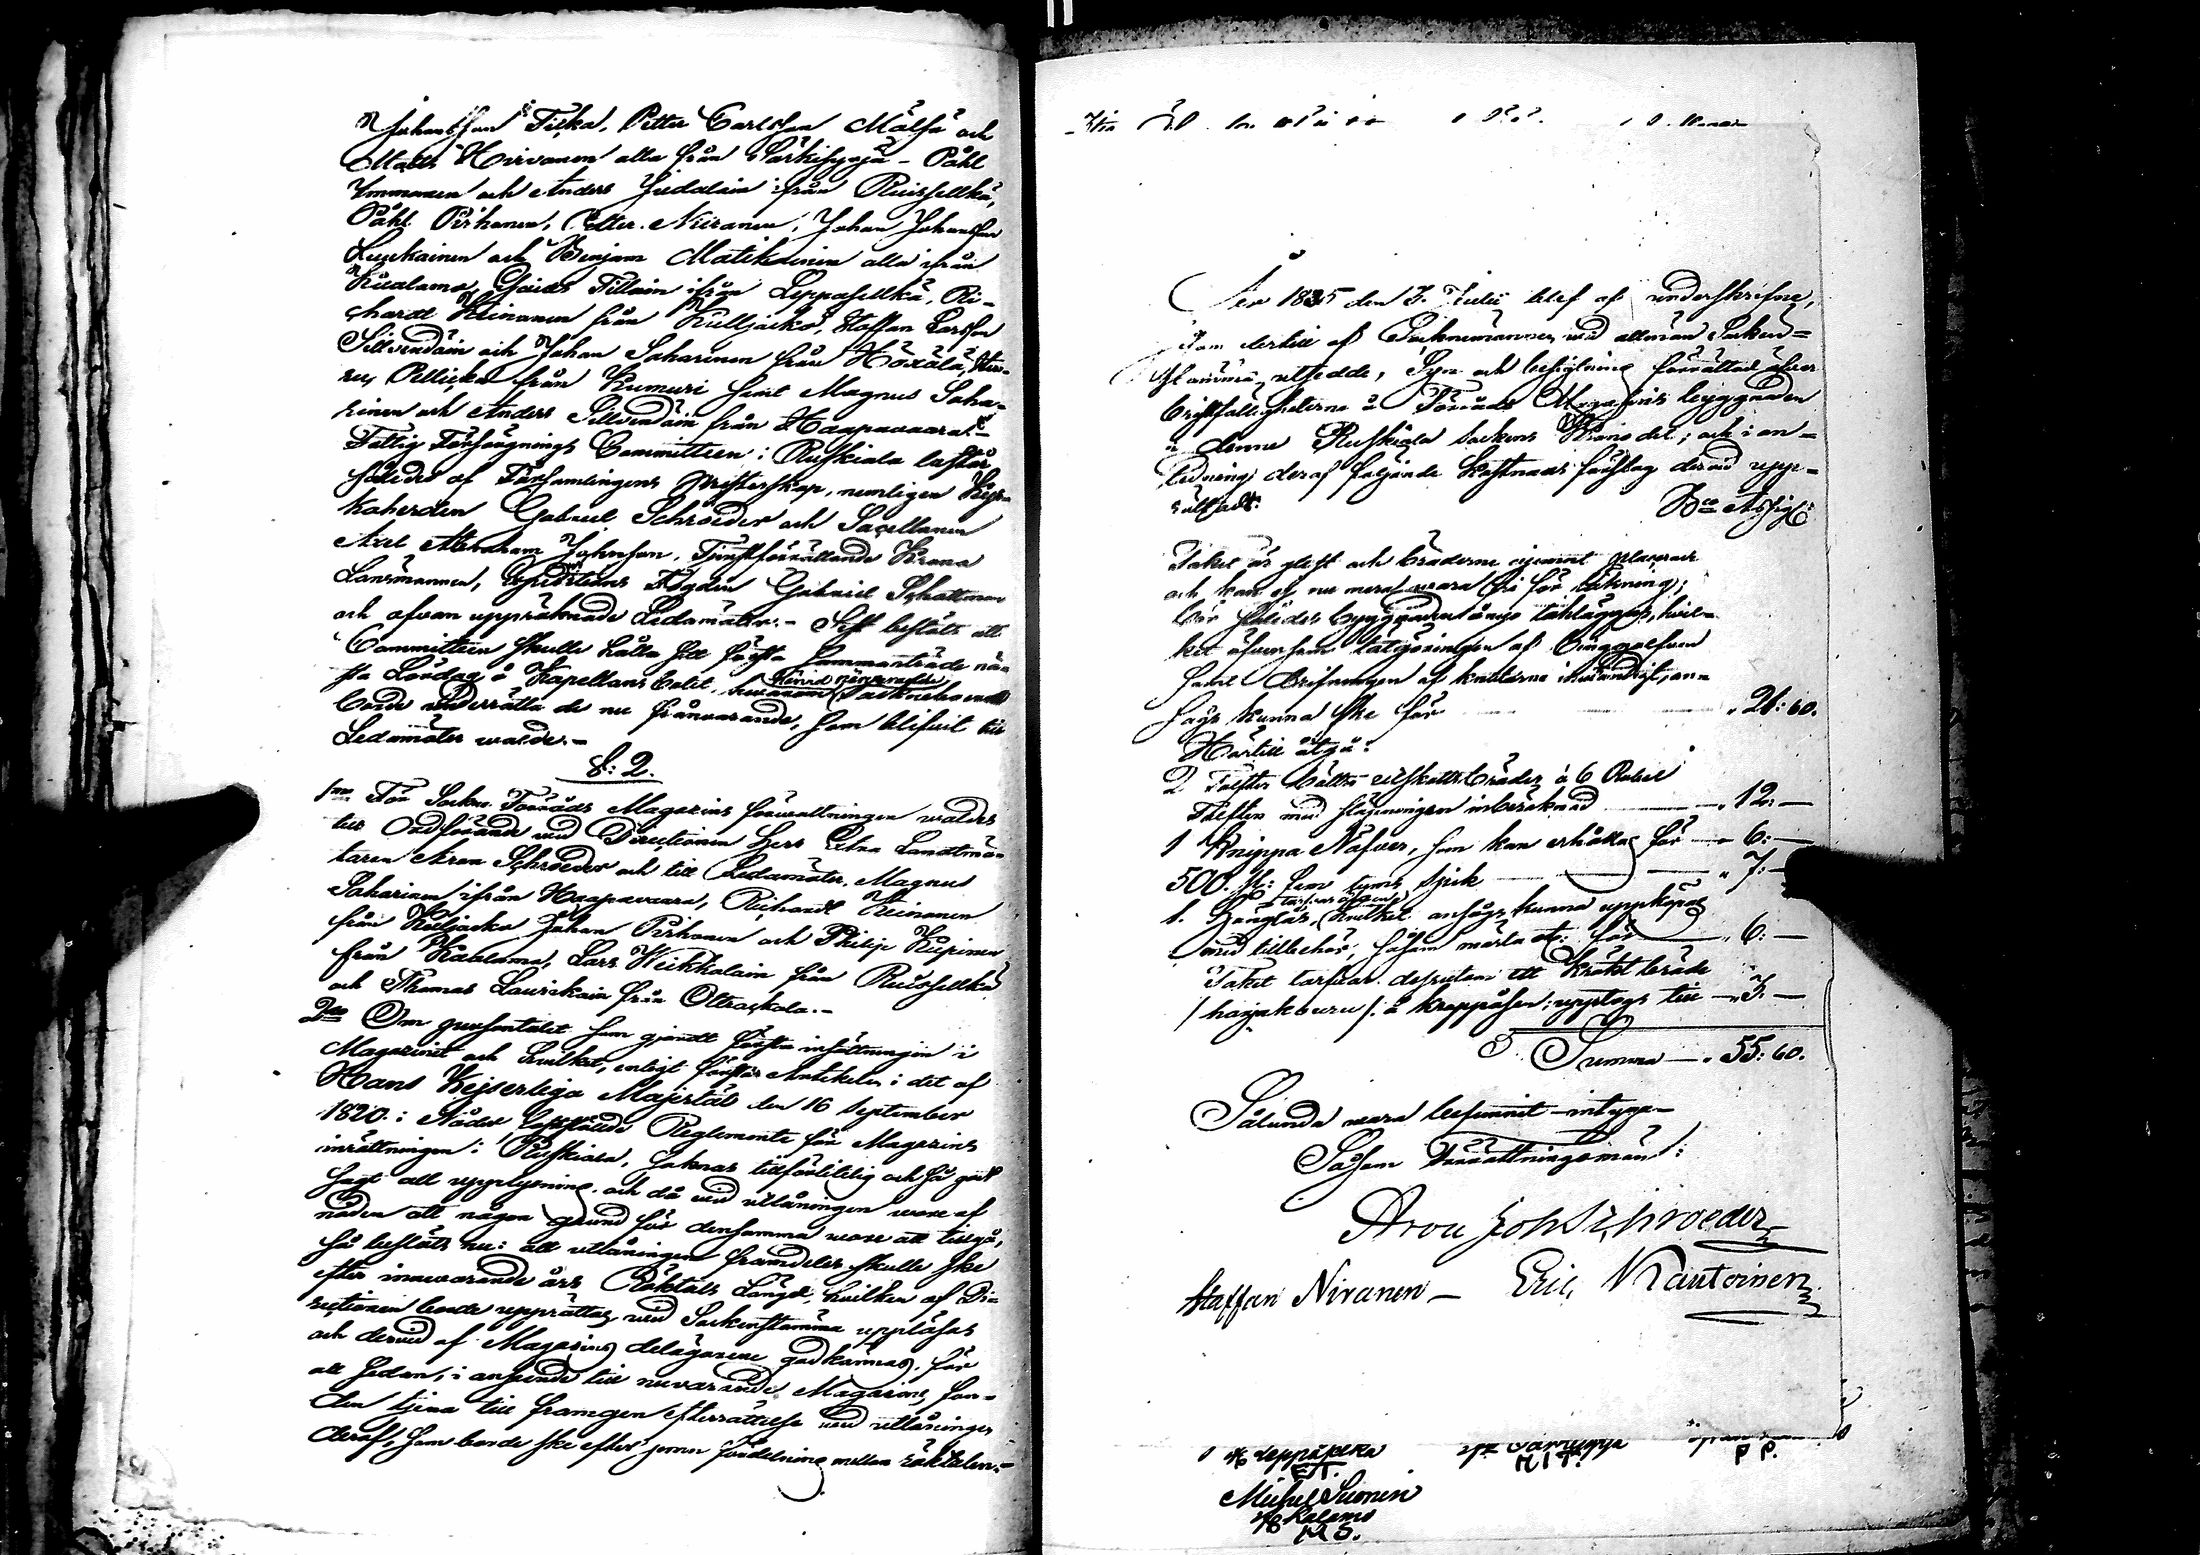 Johansson Tiska, Petter Carlsson Mälsä och
Matts Hirvonen alla från Särkisyrjä – Påhl
Immonen och Anders Hiedalain från Ruissellkä,
Påhl Pirhonen, Petter Niiranen, Johan Johansson
Leuckainen och Benjam Matikainen alla ifrån
Kaalamo, Tillain ifrån Leppäsellkä, Ri-
chardt Keinonen från Kulljacko, Staffan Larsson
Sillvendäin och Johan Saharinen från Höxälä,
Pellicka från Kumuri samt Magnus Saha-
rinen och Anders Sillvendäin från Haapavaara.
Fattig Försörgnings Committeen i Ruskiala består
således af Församlingens Presterskap, nemligen Kyr-
koherden Gabriel Schröeder och Sacellanen
Axel Abraham Johnson, Tjensteförrättande Krono
Länsmannen, Expeditions Fogden Gabriel Schattman
och ofvan uppräknade Ledamöter. – Sist beslöts att
Committeen skulle hålla sitt första sammanträde nä-
sta Lördag å Kapellans bolet, hvarom härvid närvarande Sockneboende
borde underrätta de nu frånvarande, som blifvit till
Ledamöter valde. –
§: 2.
1mo För Sockne Förråds Magazins förvaltningen valdes
till Ordförande vid Directionen Herr Landtmä-
taren Aron Schroeder och till Ledamöter, Magnus
Saharinen ifrån Haapavaara, Richardt Keinonen
från Kulljacko Johan Pirhonen och Philip Kupinen
från Kaalamo, Lars Weikkolain från Ruissellkä
och Thomas Laurikain från Otrackala. –
2do Om personталet som gjordt första insättningen i
Magazinet och hvilket, enligt första Artikeln i det af
Hans Kejserliga Majestät den 16 September
1820 i Nåder fastställde Reglemente för Magazins
inrättningen i Ruskiala, saknas tillförlitlig och så godt
sagt all upplysning, och då vid utlåningen vore af
nöden att någon grund för densamma vore att tillgå,
så beslöts nu: att utlåningen framdeles skulle ske
efter innevarande års Röktals Längd, hvilken af Di-
rectionen borde upprättas, vid Sockenstämma uppläsas
och dervid af Magazins delägarene godkännas, för
att sedan, i anseende till nuvarande Magazins fon-
den tjena till framgen efterrättelse vid utlåningen
deraf, som borde ske efter jemn fördelning mellan röktalen. –
År 1835 den 3. Julii blef af underskrifne,
som dertill af Socknemännen vid allmän Socken-
stämma utsedde, Syn och besigtning förrättad öfver
bristfälligheterna å Förråds Magazins byggnaden
i denne Ruskiala sockens Krono del; och i an-
ledning deraf följande kostnads förslag dervid upp-
rättadt.
Bco Assig:
Taket är glest och bräderne ojemnt placerade
och kan ej nu mera vara fri för läkning;
bör således byggnaden å nyo taktäggas, hvil-
ket äfvensom tätgöringen af
samt Drifningen af knutarne invändigt, an-
sågs kunna ske för " 21: 60.
Härtill åtgå:
2 Tolfter bättre utskotts bräder à 6 Rubel
Tolften med släpningen inberäknad " 12: –
1 Knippa Näfver, som kan erhållas för " 6: –
500. st: fem tums spik " 7: –
1. Hänglås, hvilket ansågs kunna uppköpas
med tillbehör, såsom märla etc: för " 6: –
Taket tarfvar dessutom ett kräkt bräde
/:harjukouru:/ å kroppåsen; upptogs till " 3. –
Summa " 55: 60.
Sålunda vara befunnit intyga
Såsom Förrättningsmän:
Aron Joh Schroeder
Staffan Niranen – Eric Kautoinen
Leppäselkä
Michel Suonen
Kalamo
M S.
P P.